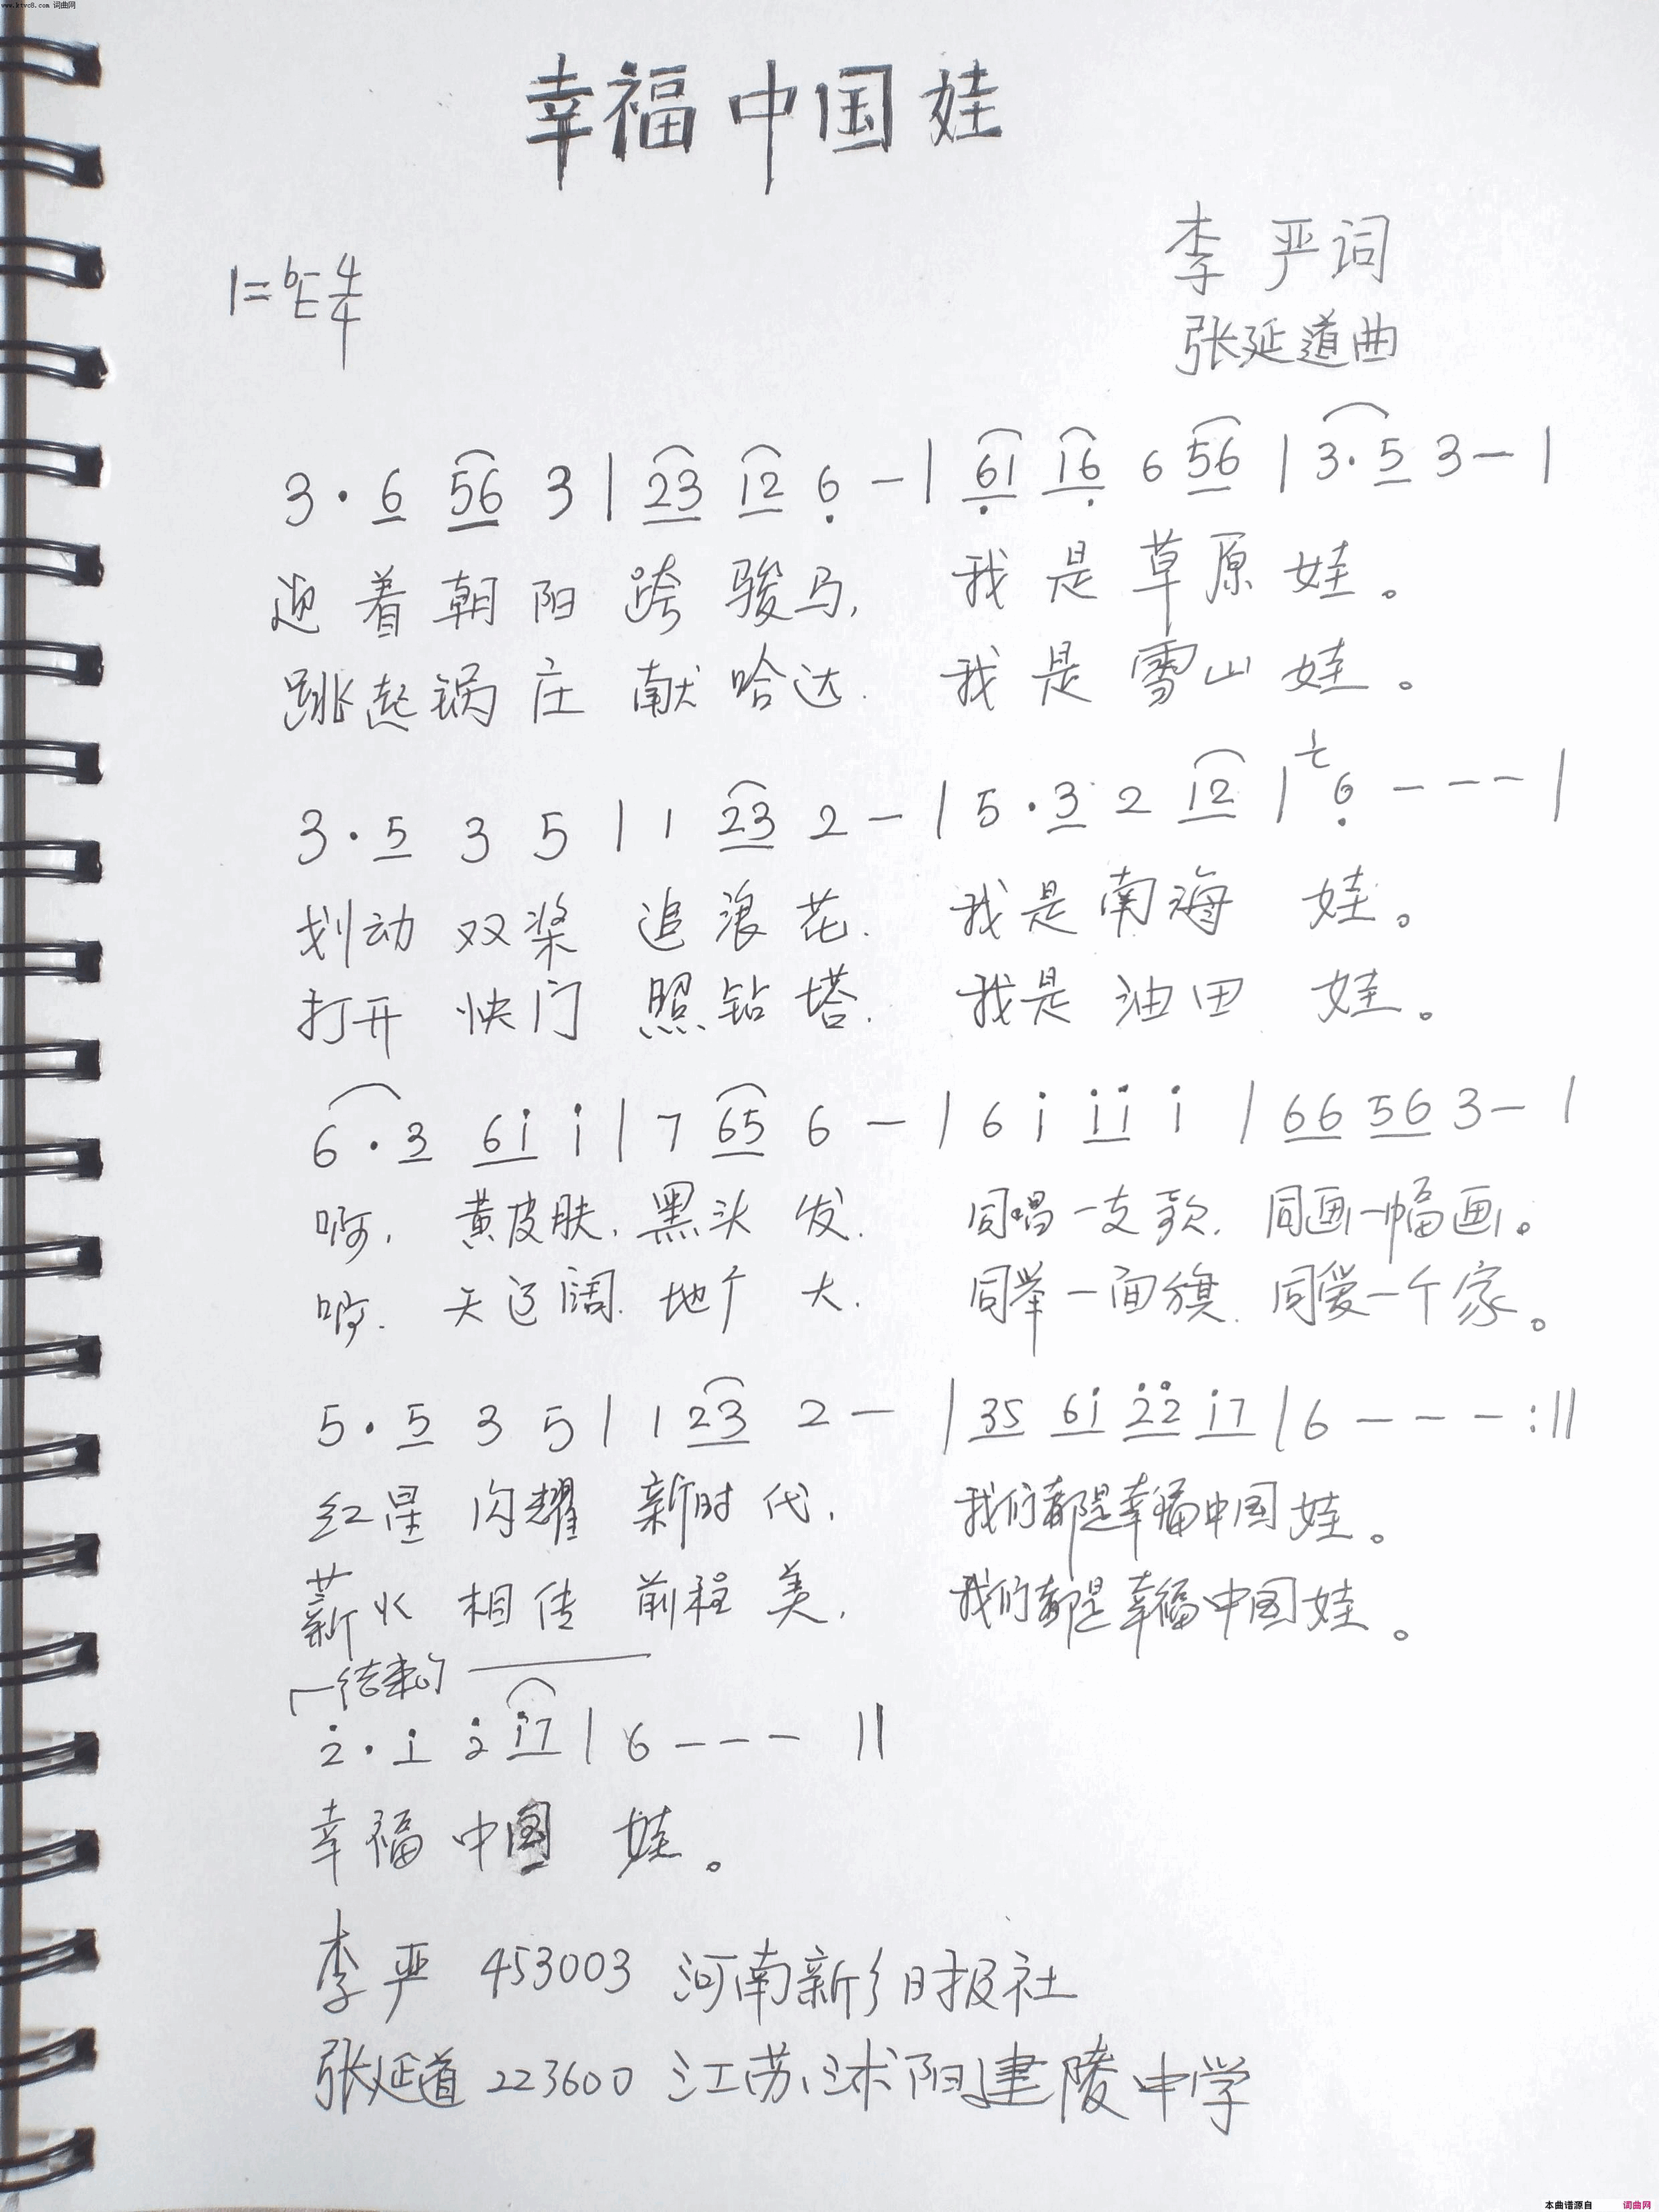 www.ktvc8.com 词曲网
幸福中国娃
李严词
1=bE 4/4
张延道曲
3·6 56 3 | 23 12 6 - | 61 16 6 56 | 3·5 3 - |
迎着朝阳跨骏马, 我是草原娃。
跳起锅庄献哈达. 我是雪山娃。
3·5 3 5 | 1 23 2 - | 5·3 2 12 | 6 - - - |
划动双桨追浪花. 我是南海娃。
打开快门照钻塔. 我是油田娃。
6·3 6i i | 7 65 6 - | 6 i ii i | 66 56 3 - |
啊, 黄皮肤, 黑头发. 同唱一支歌, 同画一幅画。
啊. 天辽阔. 地广大. 同举一面旗. 同爱一个家。
5·5 3 5 | 1 23 2 - | 35 6i 22 i7 | 6 - - - :||
红星闪耀新时代, 我们都是幸福中国娃。
薪火相传前程美, 我们都是幸福中国娃。
结束句
2·i 2 i7 | 6 - - - ||
幸福中国娃。
李严 453003 河南新乡日报社
张延道 223600 江苏沭阳建陵中学
本曲谱源自 词曲网